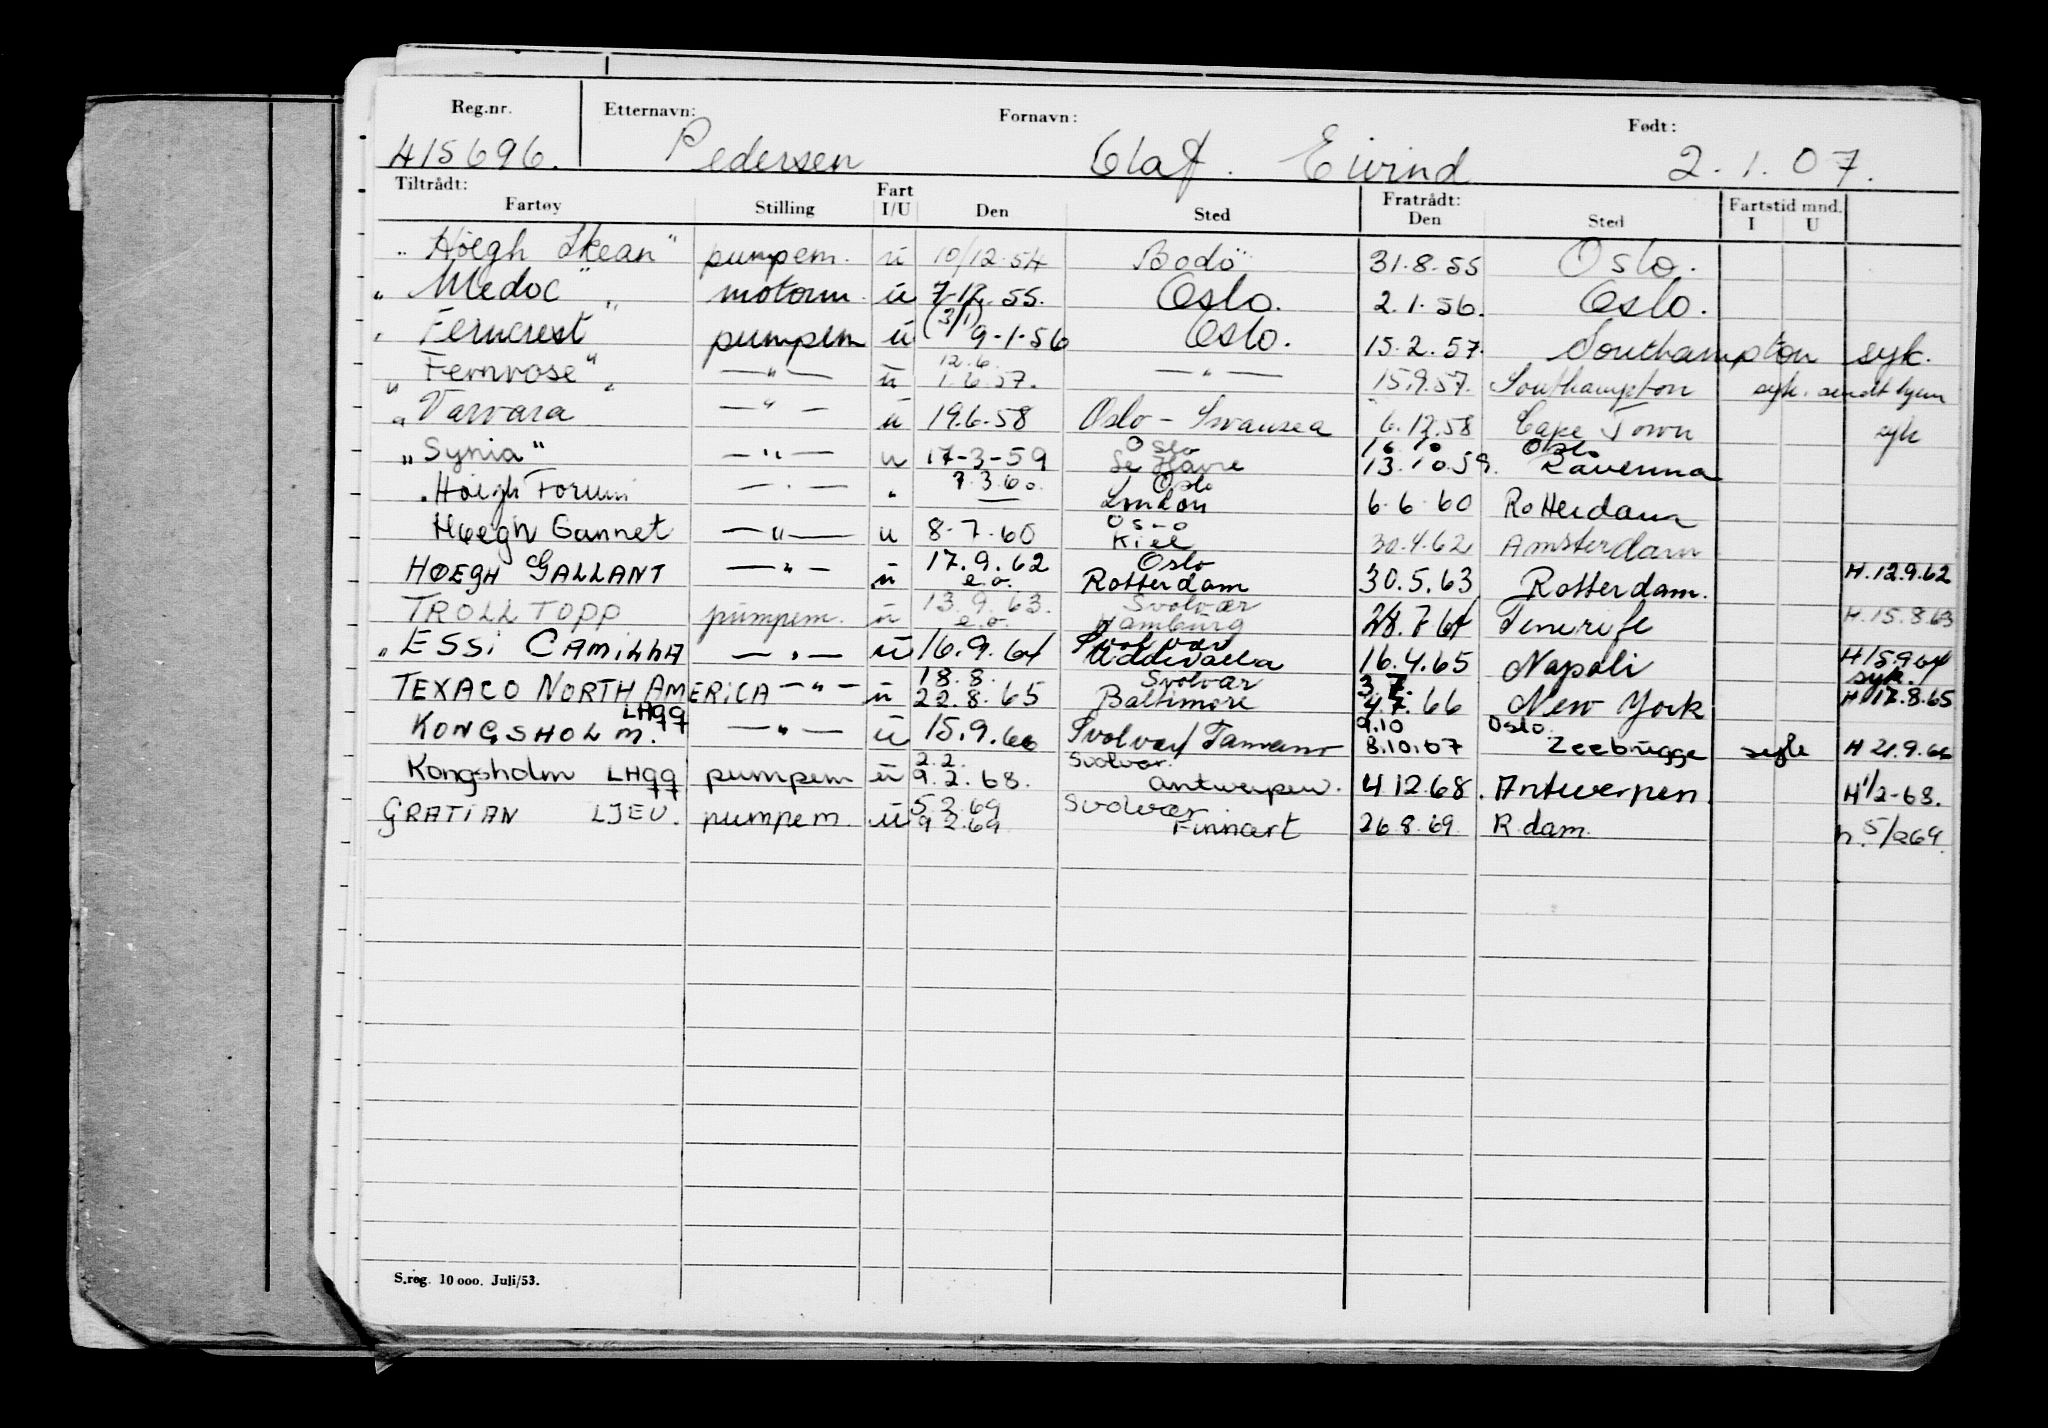 Reg.nr. Etternavn: Fornavn: Født:
415696. Pedersen Olaf. Eivind 2.1.07.
Tiltrådt: Fart Fratrådt: Fartstid mnd.
Fartøy Stilling I/U Den Sted Den Sted I U
" Høegh Skean" pumpem. u 10/12.54 Bodö 31.8.55 Oslo.
" Medoc " motorm. u 7-12.55. Oslo. 2.1.56. Oslo.
" Ferncrest" pumpem u (3/1) 9-1-56 Oslo. 15.2.57. Southampton syk.
" Fernrose" — " — u 12.6. 1.6.57. — " — 15.9.57. Southampton syk. sendt hjem
" Varvara — " — u 19.6.58 Oslo - Swansea 6.12.58 Cape Town syk
" Synia" — " — u 17-3-59 Oslo Le Havre 16.10 13.10.59. Oslo Ravenna
" Høegh Forum — " — " 7.3.60. Oslo London 6.6.60 Rotterdam
Høegh Gannet — " — u 8.7.60 Oslo Kiel 30.4.62 Amsterdam
HØEGH GALLANT — " — u 17.9.62 e.o. Oslo Rotterdam 30.5.63 Rotterdam. H.12.9.62
TROLLTOPP pumpem. u 13.9.63. e.o. Svolvær Hamburg 28.7.64 Tenerife H.15.8.63
" ESSI CAMILLA — " — u 16.9.64 Svolvær Uddevalla 16.4.65 Napoli H 15.9.64 syk.
TEXACO NORTH AMERICA — " — u 18.8. 22.8.65 Svolvær Baltimore 3.7. 4.7.66 New York H 17.8.65
KONGSHOLM. LHQQ — " — u 15.9.66 Svolvær/ 9.10 8.10.67 Oslo Zeebrugge syk H 21.9.66
Kongsholm LHQQ pumpem u 2.2. 9.2.68. Svolvær. Antwerpen. 4 12.68. Antwerpen. H 1/2-68.
GRATIAN LJEU. pumpem u 5.2.69 9 2.69 Svolvær. Finnart 26.8.69 R.dam. h. 5/269.
S.reg. 10 000. Juli/53.